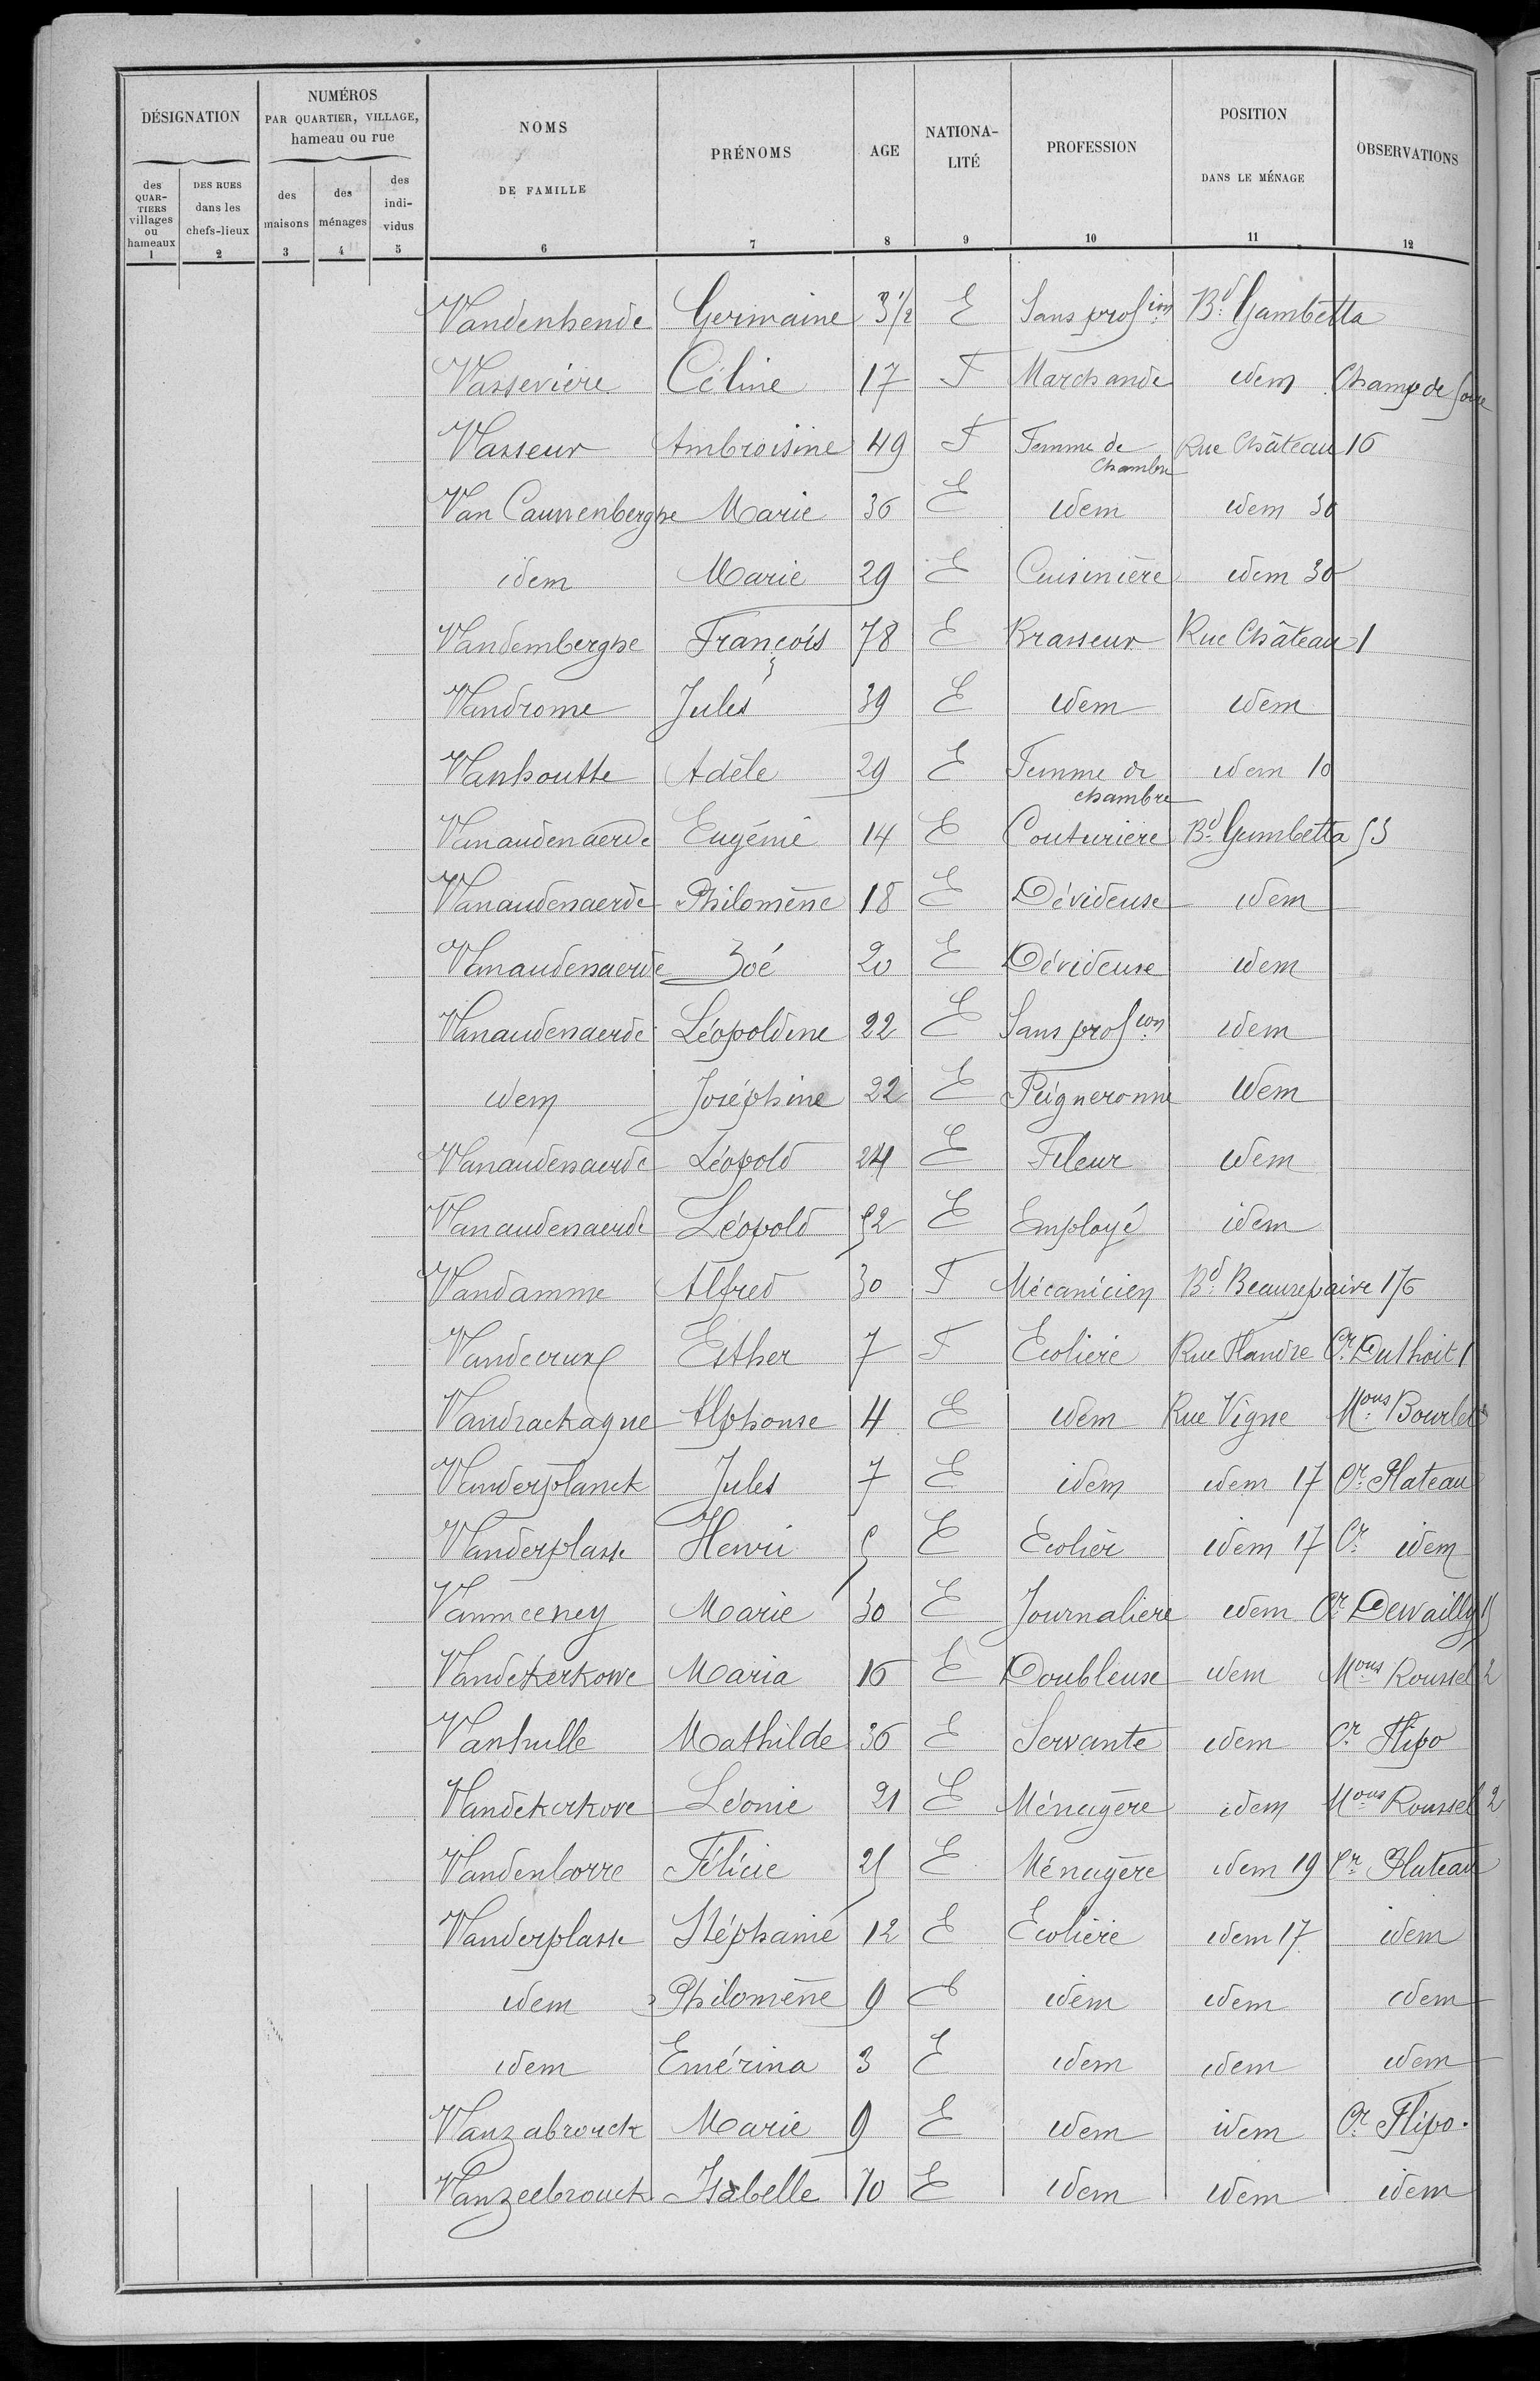 DÉSIGNATION
NUMÉROS
PAR QUARTIER, VILLAGE,
hameau ou rue
NOMS
DE FAMILLE
PRÉNOMS
AGE
NATIONA-
LITÉ
PROFESSION
POSITION
DANS LE MÉNAGE
OBSERVATIONS
des
QUAR-
TIERS
villages
ou
hameaux
DES RUES
dans les
chefs-lieux
des
maisons
des
ménages
des
indi-
vidus
1 2 3 4 5 6 7 8 9 10 11 12
Vandenhende Germaine 3 1/2 E Sans prof ion Bd Gambetta
Vassevière Céline 17 F Marchande idem Champ de foire
Vasseur Ambroisine 49 F Femme de Chambre Rue Château 16
Van Cauwenberghe Marie 36 E idem idem 30
idem Marie 29 E Cuisinière idem 30
Vandemberghe François 78 E Brasseur Rue Château 1
Vandrome Jules 39 E idem idem
Vanhoutte Adèle 29 E Femme de chambre idem 10
Vanaudenaerde Eugénie 14 E Couturière Bd Gambetta 53
Vanaudenaerde Philomène 18 E Dévideuse idem
Vanaudenaerde Zoé 20 E Dévideuse idem
Vanaudenaerde Léopoldine 22 E Sans prof ion idem
idem Joséphine 22 E Peigneronne idem
Vanaudenaerde Léopold 24 E Fileur idem
Vanaudenaerde Léopold 52 E Employé idem
Vandamme Alfred 30 F Mécanicien Bd Beaurepaire 176
Vandecrux Esther 7 F Ecolière Rue Flandre Cr Duthoit 1
Vandrackagne Alphonse 4 E idem Rue Vigne Mons Bourlet
Vanderplanck Jules 7 E idem idem 17 Cr Plateau
Vanderplasse Henri 5 E Ecolier idem 17 Cr idem
Vanmeeney Marie 30 E Journalière idem Cr Dewailly 15
Vandekerkowe Maria 16 E Doubleuse idem Mons Roussel 2
Vanhulle Mathilde 36 E Servante idem Cr Flipo
Vandekerkove Léonie 21 E Ménagère idem Mons Roussel 2
Vandenborre Félicie 25 E Ménagère idem 19 Cr Plateau
Vanderplasse Stéphanie 12 E Ecolière idem 17 idem
idem Philomène 9 E idem idem idem
idem Emérina 3 E idem idem idem
Vanzabrouck Marie 9 E idem idem Cr Flipo.
Vanzeebrouck Isabelle 70 E idem idem idem